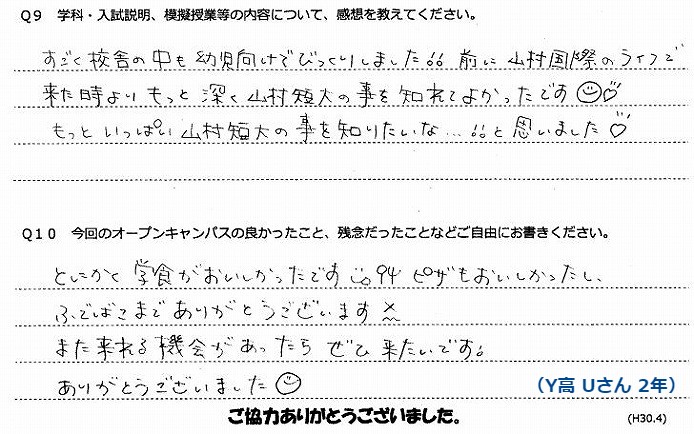 Q9　学科・入試説明、模擬授業等の内容について、感想を教えてください。
すごく校舎の中も幼児向けでびっくりしました!! 前に山村国際のライブで
来た時よりもっと深く山村短大の事を知れてよかったです☺♡
もっといっぱい山村短大の事を知りたいな…!!と思いました♡
Q10　今回のオープンキャンパスの良かったこと、残念だったことなどご自由にお書きください。
とにかく学食がおいしかったです
ピザもおいしかったし、
ふでばこまでありがとうございます
また来れる機会があったらぜひ来たいです!
ありがとうございました☺
（Y高 Uさん 2年）
ご協力ありがとうございました。
(H30.4)